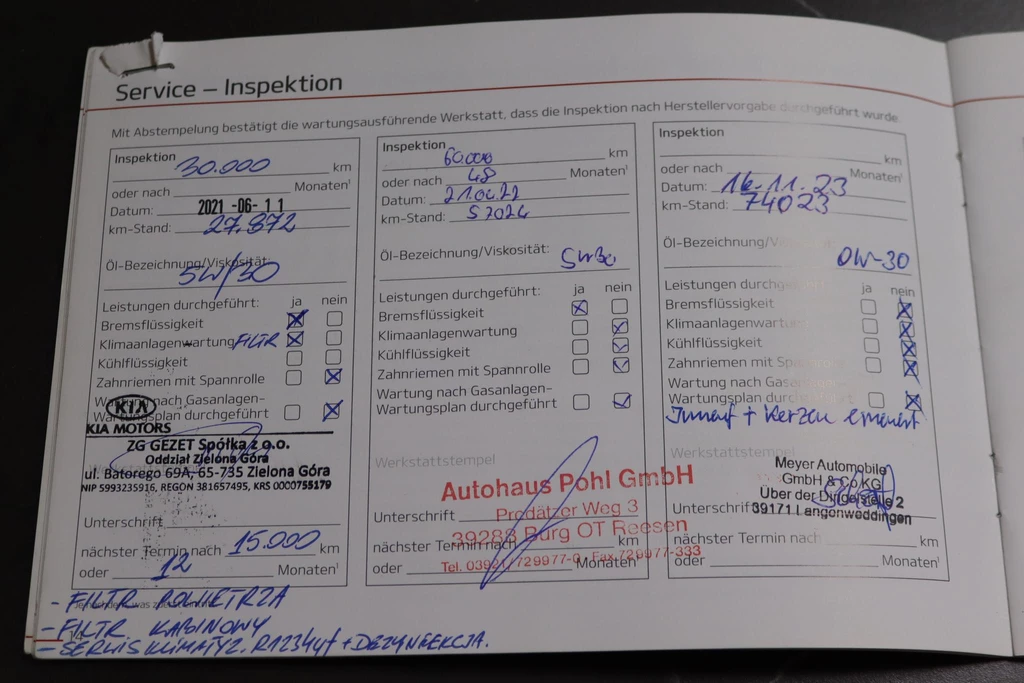 Service – Inspektion
Mit Abstempelung bestätigt die wartungsausführende Werkstatt, dass die Inspektion nach Herstellervorgabe durchgeführt wurde
Inspektion 30.000 km
oder nach Monaten¹
Datum: 2021-06-11
km-Stand: 27.872
Öl-Bezeichnung/Viskosität:
5W/30
Leistungen durchgeführt: ja nein
Bremsflüssigkeit
Klimaanlagenwartung FILTR
Kühlflüssigkeit
Zahnriemen mit Spannrolle
Wartung nach Gasanlagen-
Wartungsplan durchgeführt
KIA
KIA MOTORS
ZG GEZET Spółka z o.o.
Oddział Zielona Góra
ul. Batorego 69A, 65-735 Zielona Góra
NIP 5993235916, REGON 381657495, KRS 0000755179
Unterschrift
nächster Termin nach 15.000 km
oder 12 Monaten¹
- FILTR POWIETRZA
- FILTR KABINOWY
- SERWIS KLIMATYZ. R1234yf + DEZYNFEKCJA.
14
Inspektion 60000 km
oder nach 48 Monaten¹
Datum: 21.04.22
km-Stand: 52024
Öl-Bezeichnung/Viskosität:
5W30
Leistungen durchgeführt: ja nein
Bremsflüssigkeit
Klimaanlagenwartung
Kühlflüssigkeit
Zahnriemen mit Spannrolle
Wartung nach Gasanlagen-
Wartungsplan durchgeführt
Werkstattstempel
Autohaus Pohl GmbH
Prödätzer Weg 3
39288 Burg OT Reesen
Tel. 03921/729977-0 Fax 729977-333
Unterschrift
nächster Termin nach km
oder Monaten¹
Inspektion
km
oder nach Monaten¹
Datum: 16.11.23
km-Stand: 74023
Öl-Bezeichnung/V
0W-30
Leistungen durchgeführt: ja nein
Bremsflüssigkeit
Klimaanlagenwartung
Kühlflüssigkeit
Zahnriemen mit Spannrolle
Wartung nach Gasanlagen-
Wartungsplan durchgeführt
+ Kerzen erneuert
Werkstattstempel
Meyer Automobile
GmbH & Co KG
Über der Dingelstelle 2
39171 Langenweddingen
Unterschrift
nächster Termin nach km
oder Monaten¹